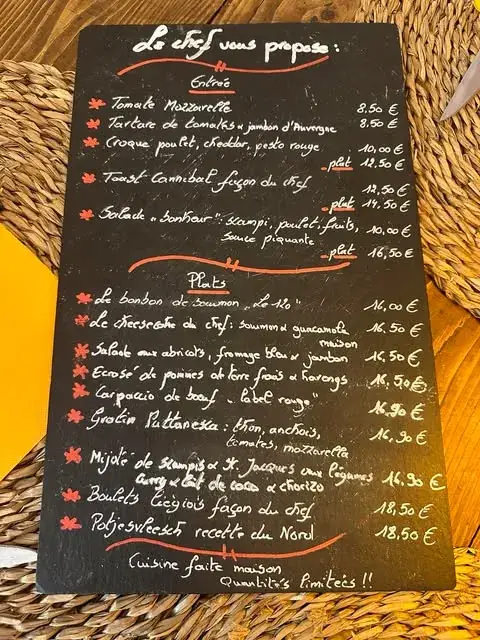 Le chef vous propose :
Entrée
Tomate Mozzarelle 8.50 €
Tartare de tomates & jambon d'Auvergne 8.50 €
Croque poulet, cheddar, pesto rouge 10,00 €
plat 12,50 €
Toast Cannibal façon du chef 12,50 €
plat 14,50 €
Salade "bonheur" : scampi, poulet, fruits, 10,00 €
sauce piquante
plat 16,50 €
Plats
Le bonbon de saumon "Le 120" 16,00 €
Le cheesecake du chef : saumon & guacamole 16.50 €
maison
Salade aux abricots, fromage bleu & jambon 16,50 €
Ecrasé de pommes de terre frais & harengs 16,50 €
Carpaccio de bœuf "label rouge" 16,90 €
Gratin Puttanesca : thon, anchois, 16,90 €
tomates, mozzarella
Mijoté de scampis & St. Jacques aux légumes 16,90 €
curry & lait de coco & chorizo
Boulets liégiois façon du chef 18,50 €
Potjesvleesch recette du Nord 18,50 €
Cuisine faite maison
Quantités limitées !!